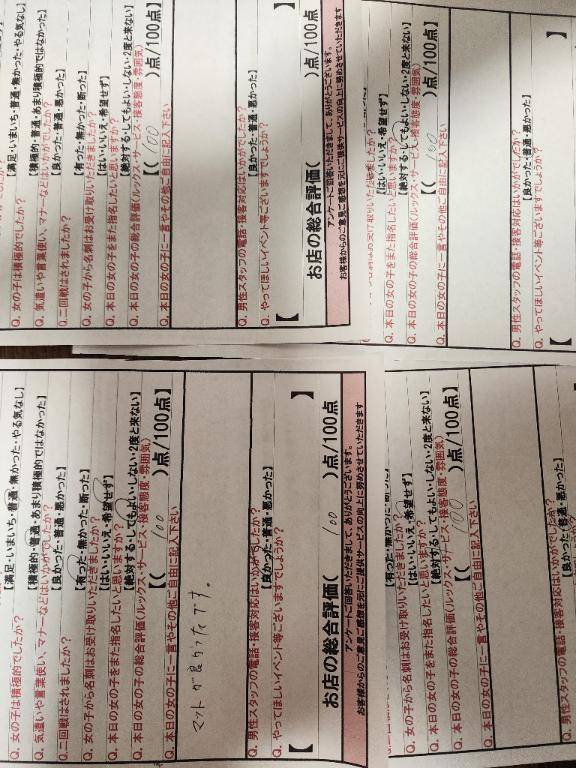 Q. 女の子は積極的でしたか? 【満足・いまいち・普通・無かった・やる気なし】
Q. 気遣いや言葉使い、マナーなどはいかがでしたか? 【積極的・普通・あまり積極的ではなかった】
Q.二回戦はされましたか? 【良かった・普通・悪かった】
Q. 女の子から名刺はお受け取りいただきましたか? 【有った・無かった・断った】
Q. 本日の女の子をまた指名したいと思いますか? 【はい・いいえ・希望せず】
Q. 本日の女の子の総合評価(ルックス・サービス・接客態度・雰囲気) 【絶対する・してもよい・しない・2度と来ない】
Q. 本日の女の子に一言やその他ご自由に記入下さい 【( 100 )点/100点】
Q. 男性スタッフの電話・接客対応はいかがでしたか?
Q. やってほしいイベント等ございますでしょうか? 【良かった・普通・悪かった】
【
お店の総合評価( )点/100点
アンケートご回答いただきまして、ありがとうございます。
お客様からのご意見ご感想を元にご提供サービスの向上に努めさせていただきます
【はい・いいえ・希望せず】
Q. 本日の女の子をまた指名したいと思いますか? 【絶対する・してもよい・しない・2度と来ない】
Q. 本日の女の子の総合評価(ルックス・サービス・接客態度・雰囲気)
Q. 本日の女の子に一言やその他ご自由に記入下さい 【( 100 )点/100点】
Q. 男性スタッフの電話・接客対応はいかがでしたか? 【良かった・普通・悪かった】
Q. やってほしいイベント等ございますでしょうか?
【 】
Q. 女の子は積極的でしたか? 【満足・いまいち・普通・無かった・やる気なし】
Q. 気遣いや言葉使い、マナーなどはいかがでしたか? 【積極的・普通・あまり積極的ではなかった】
Q.二回戦はされましたか? 【良かった・普通・悪かった】
Q. 女の子から名刺はお受け取りいただきましたか? 【有った・無かった・断った】
Q. 本日の女の子をまた指名したいと思いますか? 【はい・いいえ・希望せず】
Q. 本日の女の子の総合評価(ルックス・サービス・接客態度・雰囲気) 【絶対する・してもよい・しない・2度と来ない】
Q. 本日の女の子に一言やその他ご自由に記入下さい 【( 100 )点/100点】
マットが良かったです。
Q. 男性スタッフの電話・接客対応はいかがでしたか?
Q. やってほしいイベント等ございますでしょうか? 【良かった・普通・悪かった】
【 】
お店の総合評価( 100 )点/100点
アンケートご回答いただきまして、ありがとうございます。
お客様からのご意見ご感想を元にご提供サービスの向上に努めさせていただきます
【有った・無かった・断った】
Q. 女の子から名刺はお受け取りいただきましたか? 【はい・いいえ・希望せず】
Q. 本日の女の子をまた指名したいと思いますか? 【絶対する・してもよい・しない・2度と来ない】
Q. 本日の女の子の総合評価(ルックス・サービス・接客態度・雰囲気)
Q. 本日の女の子に一言やその他ご自由に記入下さい 【( 100 )点/100点】
Q. 男性スタッフの電話・接客対応はいかがでしたか? 【良かった・普通・悪かった】